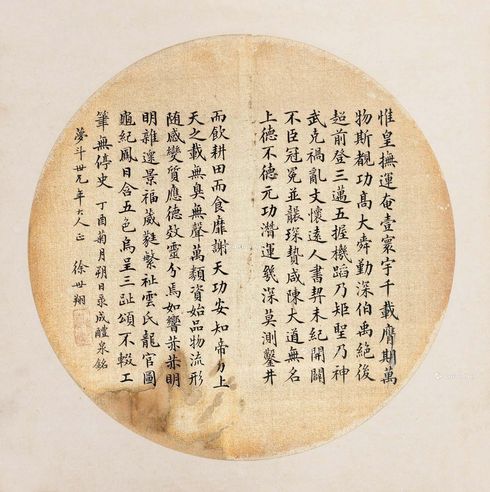 惟皇撫運奄壹寰宇千載膺期萬
物斯覩功高大舜勤深伯禹絕後
超前登三邁五握機蹈乃矩聖乃神
武克禍亂文懷遠人書契未紀開闢
不臣冠冕並襲琛贄咸陳大道無名
上德不德元功潛運幾深莫測鑿井
而飲耕田而食靡謝天功安知帝力上
天之載無臭無聲萬類資始品物流形
随感變質應德效靈分焉如響赫赫明
明雜遝景福葳蕤繁祉雲氏龍官圖
龜紀鳳日含五色烏呈三趾頌不輟工
筆無停史 丁酉菊月朔日录成醴泉銘
夢斗世兄年大人正 徐世翔